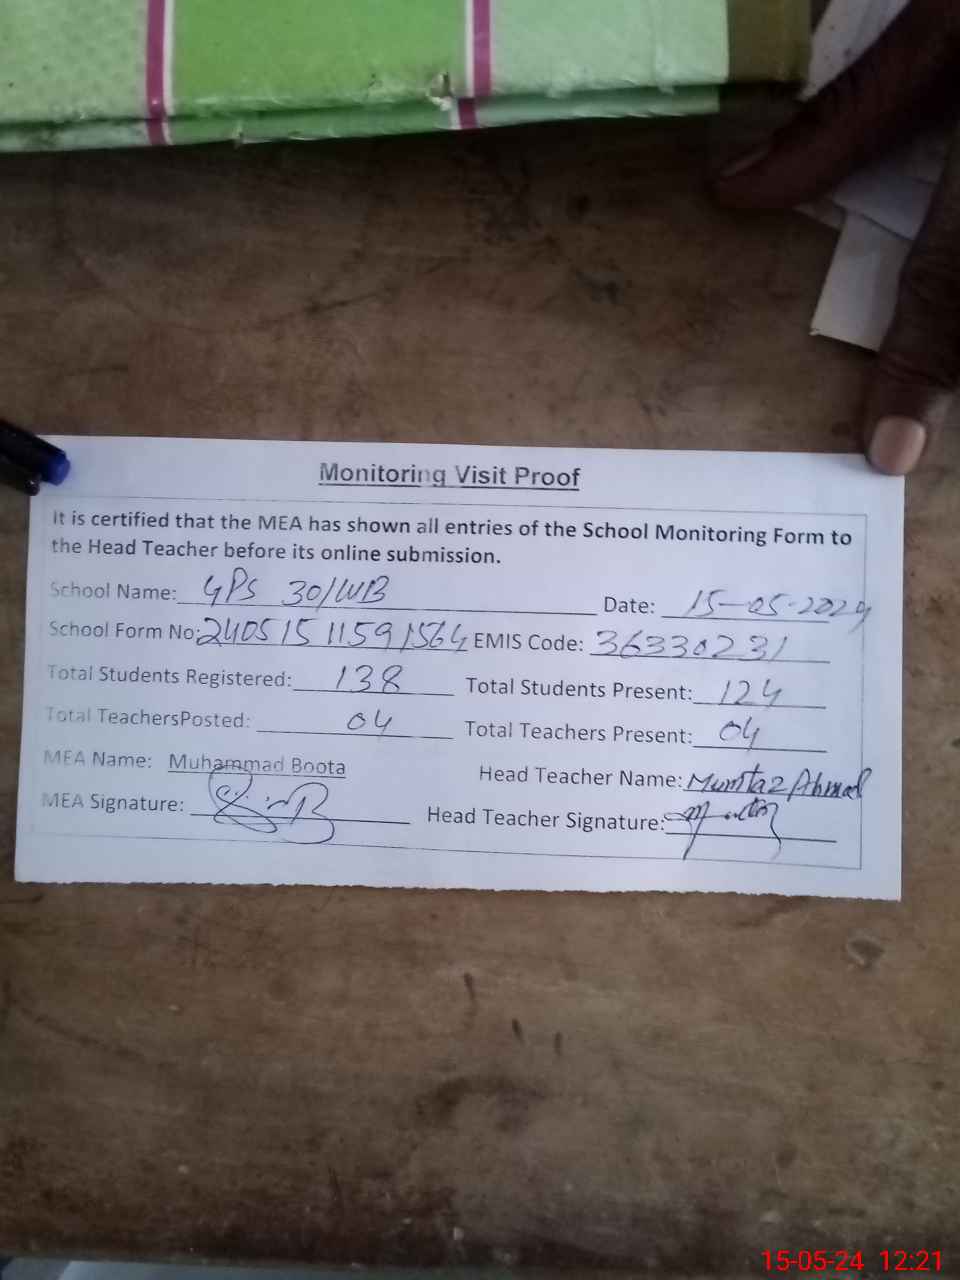 Monitoring Visit Proof
It is certified that the MEA has shown all entries of the School Monitoring Form to
the Head Teacher before its online submission.
School Name: GPS 30/WB Date: 15-05-2024
School Form No: 24051511591564 EMIS Code: 36330231
Total Students Registered: 138 Total Students Present: 124
Total TeachersPosted: 04 Total Teachers Present: 04
MEA Name: Muhammad Boota Head Teacher Name: Mumtaz Ahmad
MEA Signature: Head Teacher Signature:
15-05-24 12:21